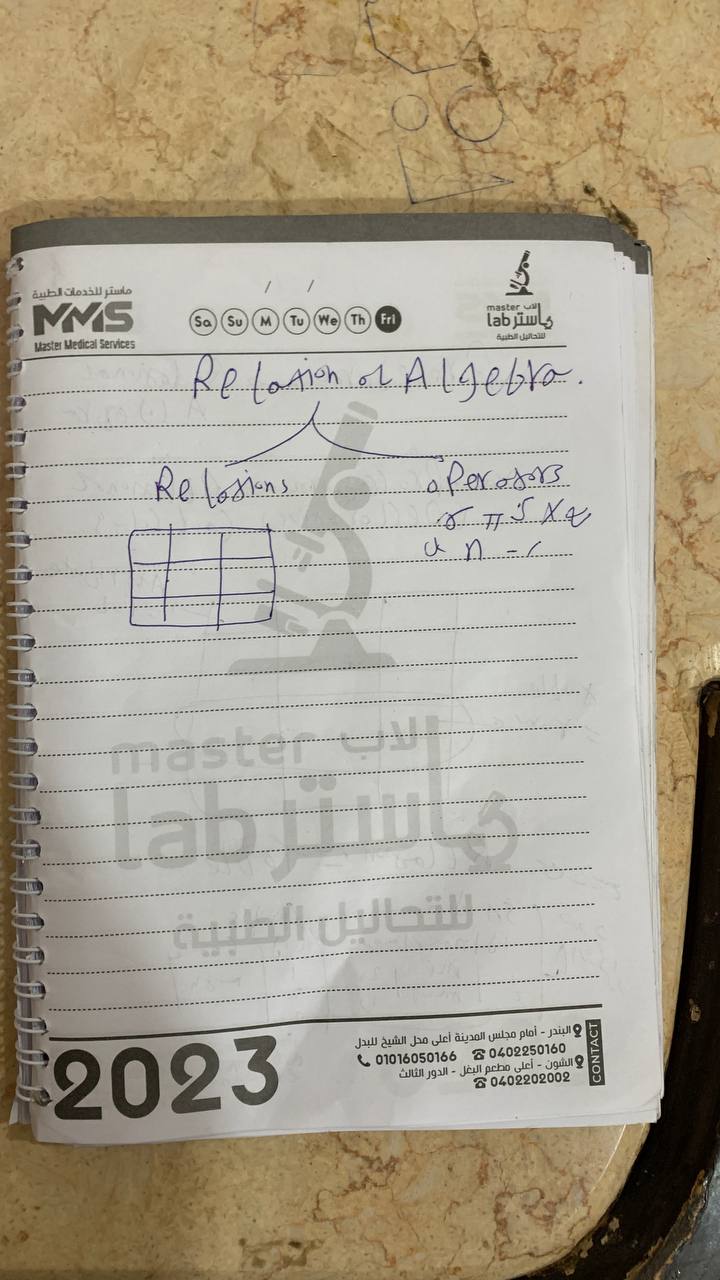 ماستر للخدمات الطبية
MMS
Master Medical Services
Sa Su M Tu We Th Fri
/ /
master لاب
lab ماستر
للتحاليل الطبية
Relation of Algebra.
Relations
operators
π
U n -
master لاب
lab ماستر
للتحاليل الطبية
2023
البندر - أمام مجلس المدينة أعلى محل الشيخ للبدل
01016050166 0402250160
الشون - أعلى مطعم البغل - الدور الثالث
0402202002
CONTACT